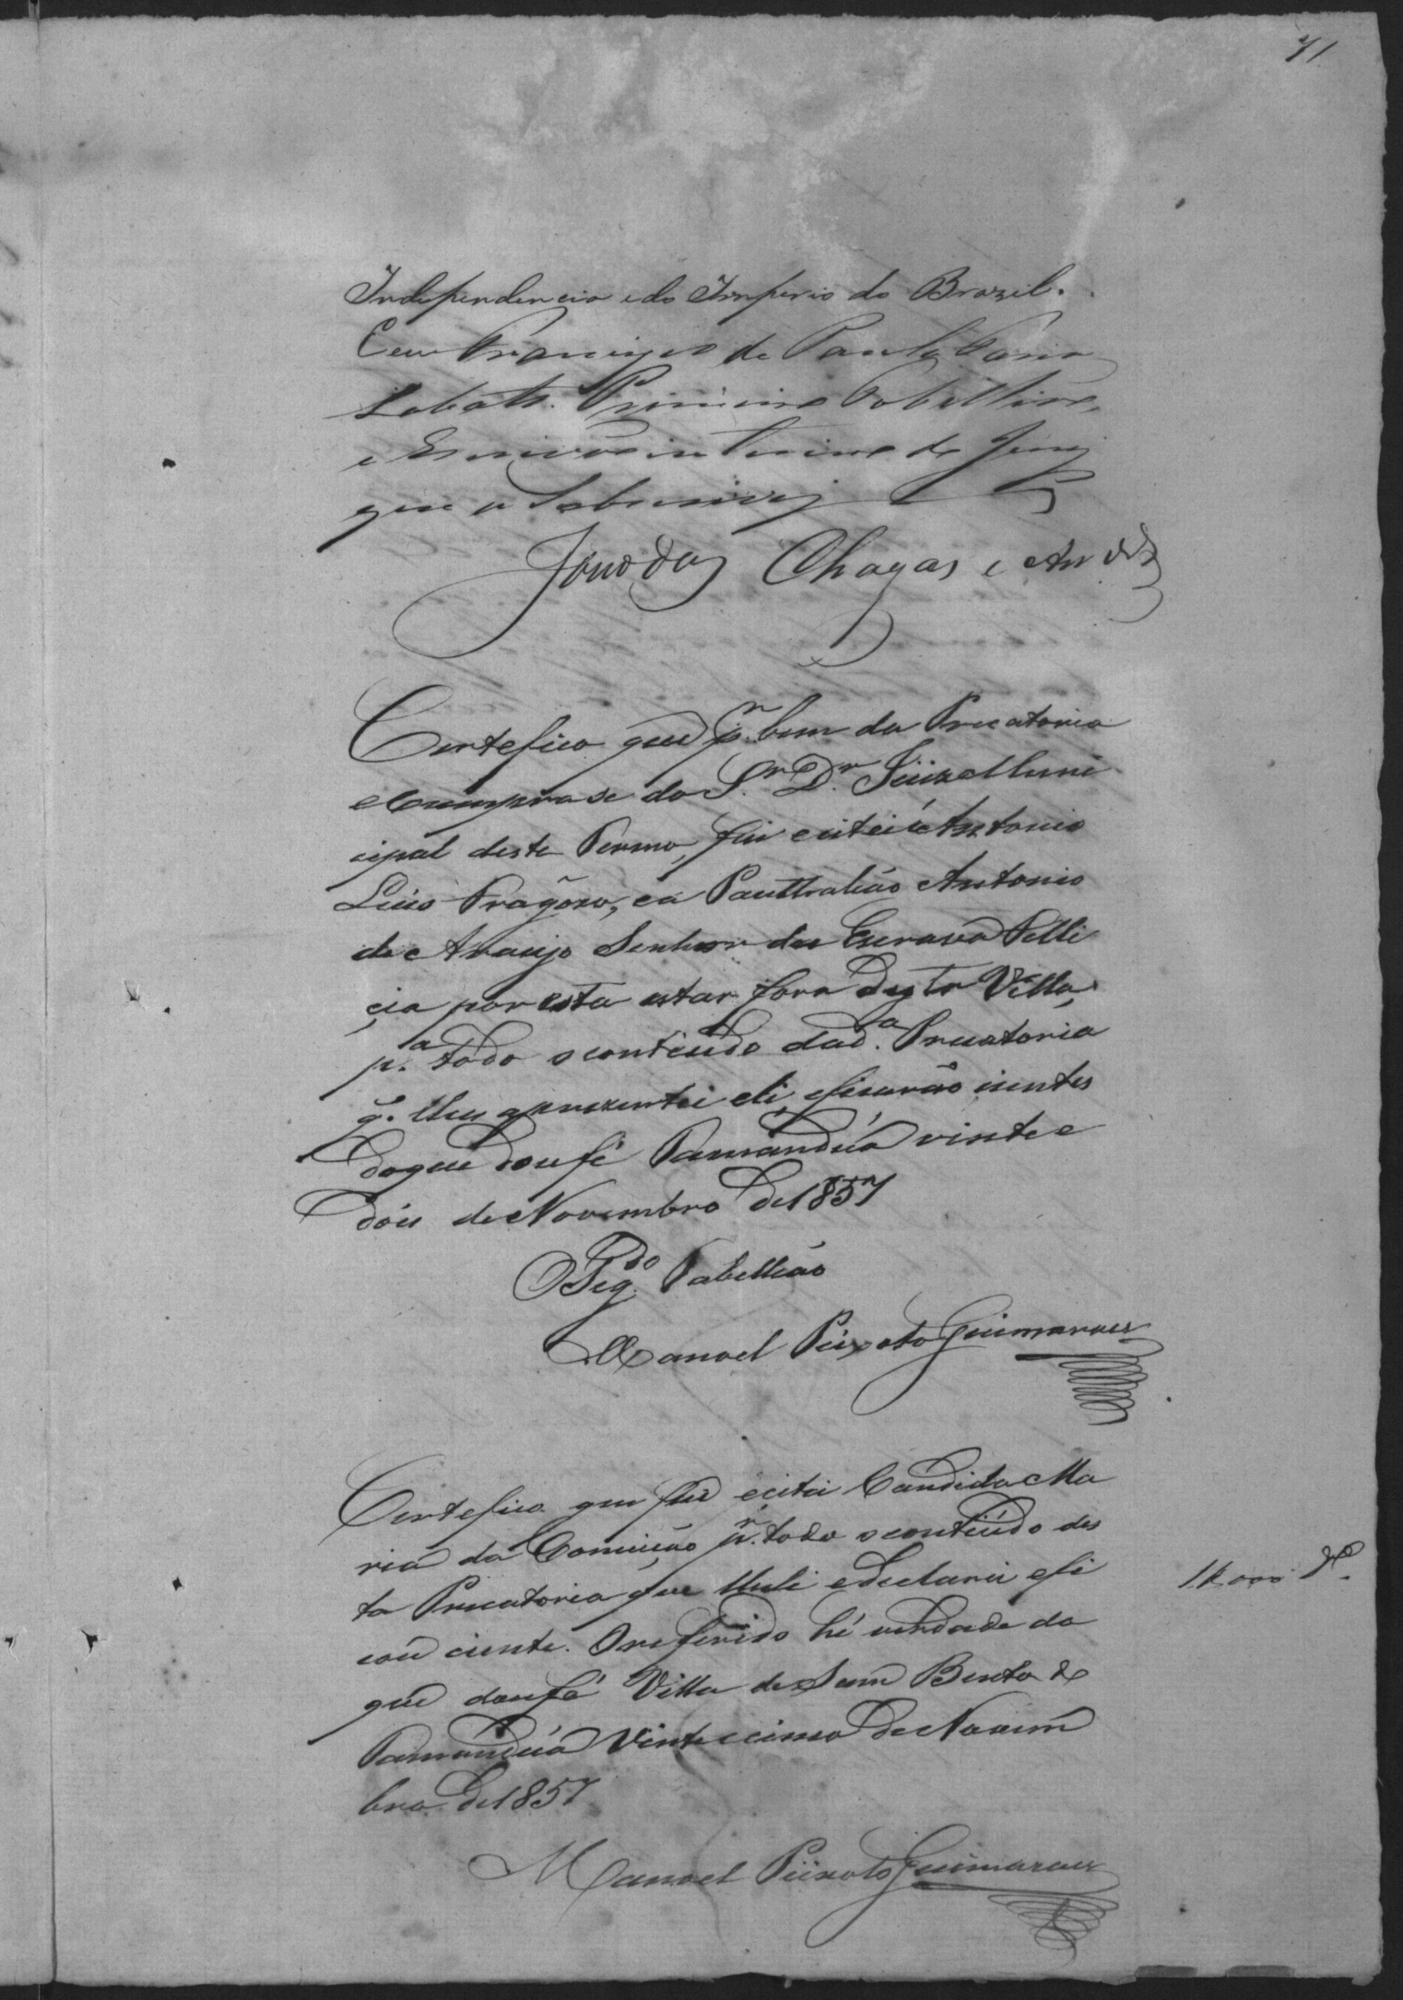 71
Independencia e do Imperio do Brazil.
Eu Francisco de Paula Faria
Lobato. Primeiro Tabellião,
e Escrivão interino do Jury
que o sobscrivy
João das Chagas e And.
Certefico que p.r bem da Precatoria
e Cumprase do S.r D.r Juiz Muni
cipal deste Termo, fui e citei á Antonio
Luis Fragôzo, e a Pantaliáo Antonio
de Araujo Senhor da Escrava Felli
cia por esta estar fora desta Villa,
p.a todo o contiudo da d.a Precatoria
q. lhes aprezentei eli, eficarão cientes
do que dou fé Tamanduá vinte e
dois de Novembro de 1857
O Seg.do Tabelliáo
Manoel Peixoto Guimaraes
Certefico que fui e citei Candida Ma
ria da Conceição p.r todo o contiúdo des
ta Precatoria que lhe li e declarei e fi
cou ciente. O referido hé verdade do
que dou fé Villa de Sam Bento de
Tamanduá Vinte e cinco de Novem
bro de 1857
Manoel Peixoto Guimaraes